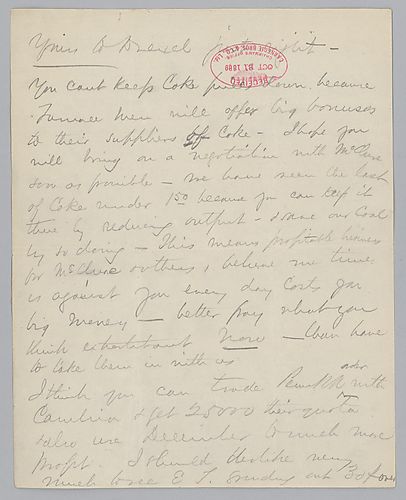 Yours to Drexel just right —
CARNEGIE BROS & CO., LIM.
OCT 31 1889
RECEIVED
You cant keep Coke price down, because
Furnace Men will offer big bonuses
to their suppliers of Coke — I hope you
will bring on a negotiation with McClure
soon as possible — we have seen the last
of Coke under 1 50 because you can keep it
there by reducing output — & save our Coal
by so doing — This means profitable business
for McClure & others, & believe me time
is against you every day costs you
big money — better pay what you
think exhorbitant Now — than have
to take them in with us
I think you can trade Penn RR order with
Cambria & get 25000 their quota
also use December to much more
profit. I should dislike very
much to see E T. running out 3d of over